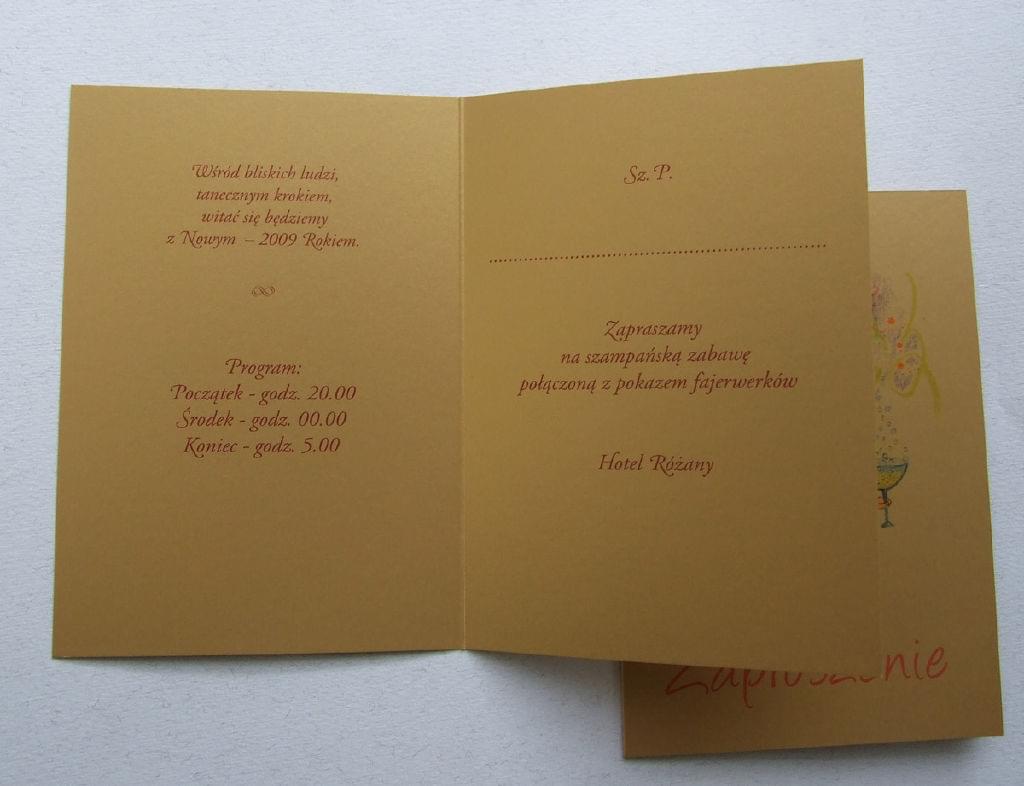 Wśród bliskich ludzi,
tanecznym krokiem,
witać się będziemy
z Nowym – 2009 Rokiem.
Program:
Początek - godz. 20.00
Środek - godz. 00.00
Koniec - godz. 5.00
Sz. P.
Zapraszamy
na szampańską zabawę
połączoną z pokazem fajerwerków
Hotel Różany
Zaproszenie